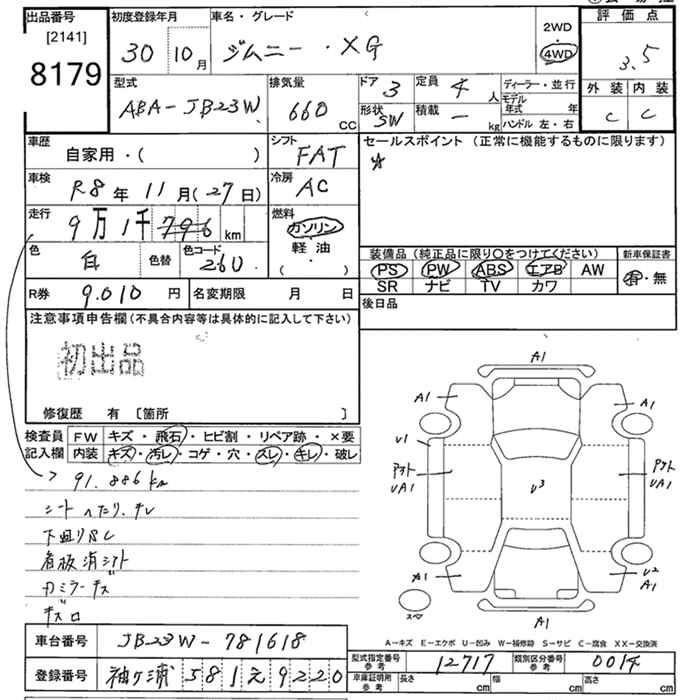 出品番号
[2141]
8179
初度登録年月
30 10 月
車名・グレード
ジムニー ・ XG
2WD
4WD
評価点
3.5
外装 内装
C C
型式
ABA-JB23W
排気量
660 cc
ドア 3
形状 SW
定員 4 人
積載 - kg
ディーラー・並行
モデル年式 年
ハンドル 左・右
車歴
自家用・( )
シフト
FAT
セールスポイント (正常に機能するものに限ります)
車検
R8 年 11 月 (27 日)
冷房
AC
走行
9 万 1 千 796 km
燃料
ガソリン
・
軽油
・
( )
色
白
色替
色コード
26U
装備品 (純正品に限り○をつけてください)
PS PW ABS エアB AW
SR ナビ TV カワ
新車保証書
有・無
R券 9.010 円
名変期限 月 日
後日品
注意事項申告欄 (不具合内容等は具体的に記入して下さい)
初出品
修復歴 有 〔箇所 〕
検査員
記入欄
FW キズ・飛石・ヒビ割・リペア跡・×要
内装 キズ・汚レ・コゲ・穴・スレ・キレ・破レ
91.886km
シート ヘタリ.チレ
下廻りサビ
看板消シアト
カミラーキズ
A1
A1
A1
U1
アオト
UA1
U3
アオト
UA1
A1
U2
A1
A1
スペア
A-キズ E-エクボ U-凹み W-補修跡 S-サビ C-腐食 XX-交換済
車台番号 JB23W-781618
登録番号 袖ヶ浦 581 え 9220
型式指定番号
参考
12717
類別区分番号
参考
0014
車庫証明用
参考
長さ cm
幅 cm
高さ cm